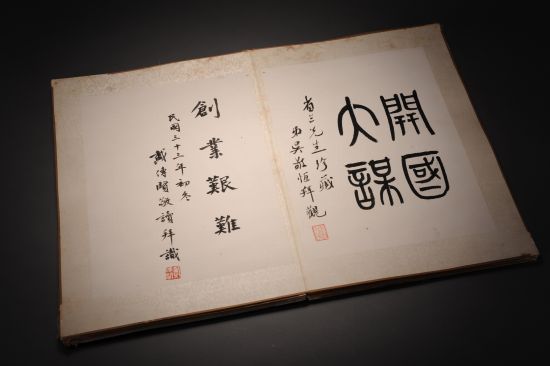 開國
大謀
省三先生珍藏
弟吳敬恆拜觀
創業艱難
民國三十三年初冬
戴傳賢敬讀拜識